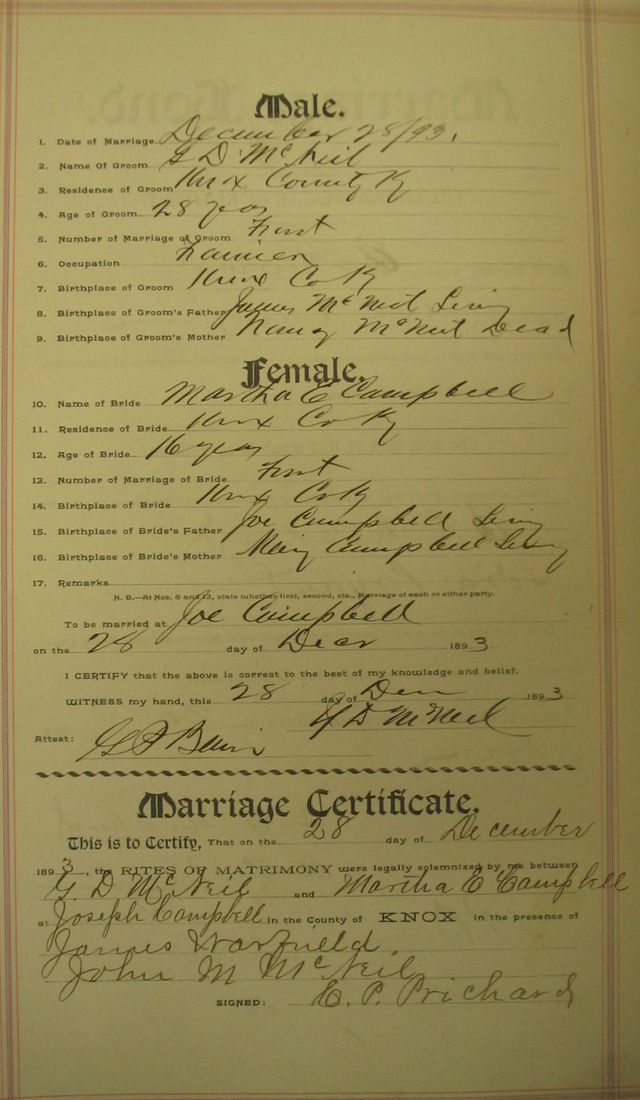 Male.
1. Date of Marriage December 28/93.
2. Name Of Groom G D McNeil
3. Residence of Groom Knox County Ky
4. Age of Groom 28 years
5. Number of Marriage of Groom First
6. Occupation Farmer
7. Birthplace of Groom Knox Co Ky
8. Birthplace of Groom's Father James McNeil Living
9. Birthplace of Groom's Mother Nancy McNeil Dead
Female.
10. Name of Bride Martha E Campbell
11. Residence of Bride Knox Co Ky
12. Age of Bride 16 years
13. Number of Marriage of Bride First
14. Birthplace of Bride Knox Co Ky
15. Birthplace of Bride's Father Joe Campbell Living
16. Birthplace of Bride's Mother Mary Campbell Living
17. Remarks
N. B.—At Nos. 5 and 13, state whether first, second, etc., Marriage of each or either party.
To be married at Joe Campbell
on the 28 day of Decr 1893
I CERTIFY that the above is correct to the best of my knowledge and belief.
WITNESS my hand, this 28 day of Dec 1893
G D McNeil
Attest:
Marriage Certificate.
This is to Certify, That on the 28 day of December
1893, the RITES OF MATRIMONY were legally solemnized by me between
G. D McNeil and Martha E Campbell
at Joseph Campbell in the County of KNOX in the presence of
James Warfield.
John M McNeil
SIGNED: E. P. Prichard